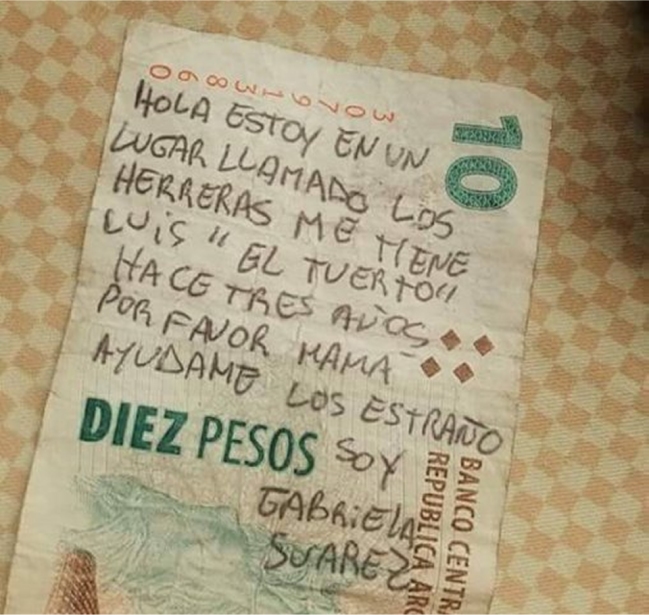 307913860
10
HOLA ESTOY EN UN
LUGAR LLAMADO LOS
HERRERAS ME TIENE
LUIS "EL TUERTO"
HACE TRES AÑOS
POR FAVOR MAMA
AYUDAME LOS ESTRAÑO
DIEZ PESOS
SOY
GABRIELA
SUAREZ
BANCO CENTR
REPUBLICA AR